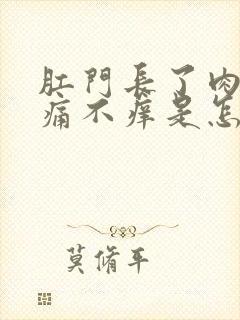 肛門長了肉
痛不癢是怎
莫脩平